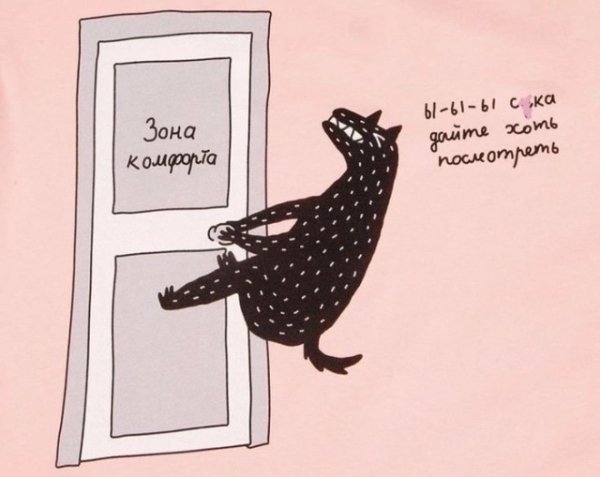 Зона
комфорта
ы-ы-ы сука
дайте хоть
посмотреть